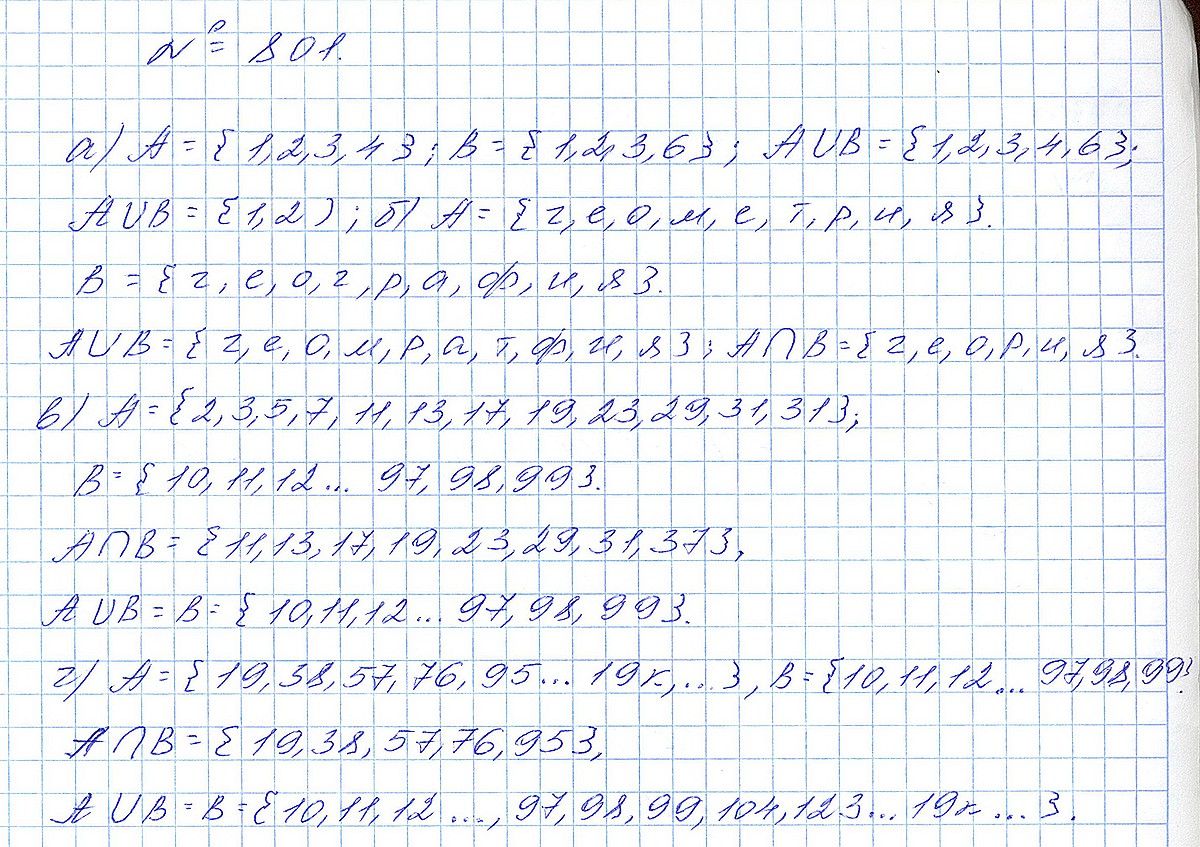 № 801.
а) A = {1,2,3,4}; B = {1,2,3,6}; A∪B = {1,2,3,4,6};
A∪B = {1,2); б) A = {г, е, о, м, е, т, р, и, я}.
B = {г, е, о, г, р, а, ф, и, я}.
A∪B = {г, е, о, м, р, а, т, ф, и, я}; A∩B = {г, е, о, р, и, я}.
в) A = {2,3,5,7, 11, 13, 17, 19, 23, 29, 31, 31};
B = {10, 11, 12... 97, 98, 99}.
A∩B = {11, 13, 17, 19, 23, 29, 31, 37},
A∪B = B = {10, 11, 12... 97, 98, 99}.
г) A = {19, 38, 57, 76, 95... 19к,...}, B = {10, 11, 12... 97, 98, 99}.
A∩B = {19, 38, 57, 76, 95},
A∪B = B = {10, 11, 12 ..., 97, 98, 99, 104, 123... 19к ... }.